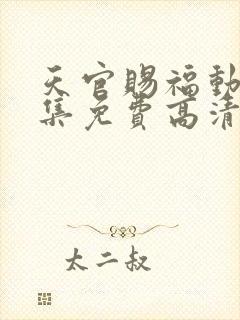 天官賜福動
集免費高清
太二叔